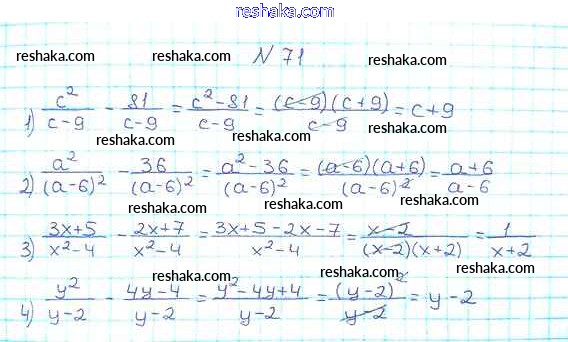 reshaka.com
reshaka.com reshaka.com reshaka.com
N 71
reshaka.com reshaka.com reshaka.com
1) c²/(c-9) - 81/(c-9) = (c²-81)/(c-9) = ((c-9)(c+9))/(c-9) = c+9
reshaka.com reshaka.com reshaka.com
2) a²/(a-6)² - 36/(a-6)² = (a²-36)/(a-6)² = ((a-6)(a+6))/(a-6)² = (a+6)/(a-6)
reshaka.com reshaka.com reshaka.com
3) (3x+5)/(x²-4) - (2x+7)/(x²-4) = (3x+5-2x-7)/(x²-4) = (x-2)/((x-2)(x+2)) = 1/(x+2)
reshaka.com reshaka.com reshaka.com
4) y²/(y-2) - (4y-4)/(y-2) = (y²-4y+4)/(y-2) = (y-2)²/(y-2) = y-2
reshaka.com reshaka.com reshaka.com